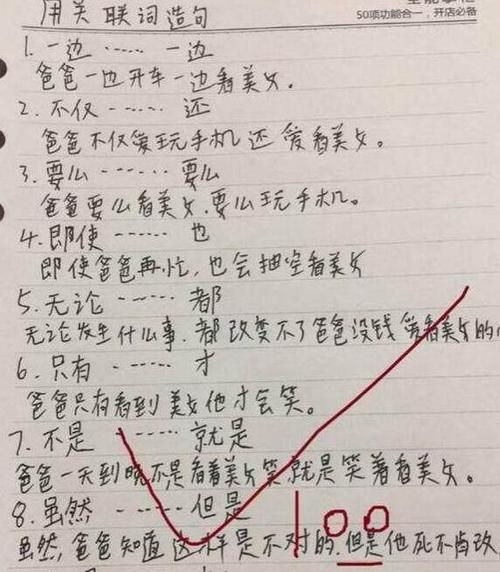 用关联词造句
50项功能合一，开店必备
1. 一边 …… 一边
爸爸一边开车一边看美女。
2. 不仅 …… 还
爸爸不仅爱玩手机还爱看美女。
3. 要么 …… 要么
爸爸要么看美女.要么玩手机。
4. 即使 …… 也
即使爸爸再忙,也会抽空看美女
5. 无论 …… 都
无论发生什么事.都改变不了爸爸没钱爱看美女的
6. 只有 …… 才
爸爸只有看到美女他才会笑。
7. 不是 …… 就是
爸爸一天到晚不是看着美女笑就是笑着看美女。
8. 虽然 …… 但是
虽然,爸爸知道这样是不对的.但是他死不肯改
100